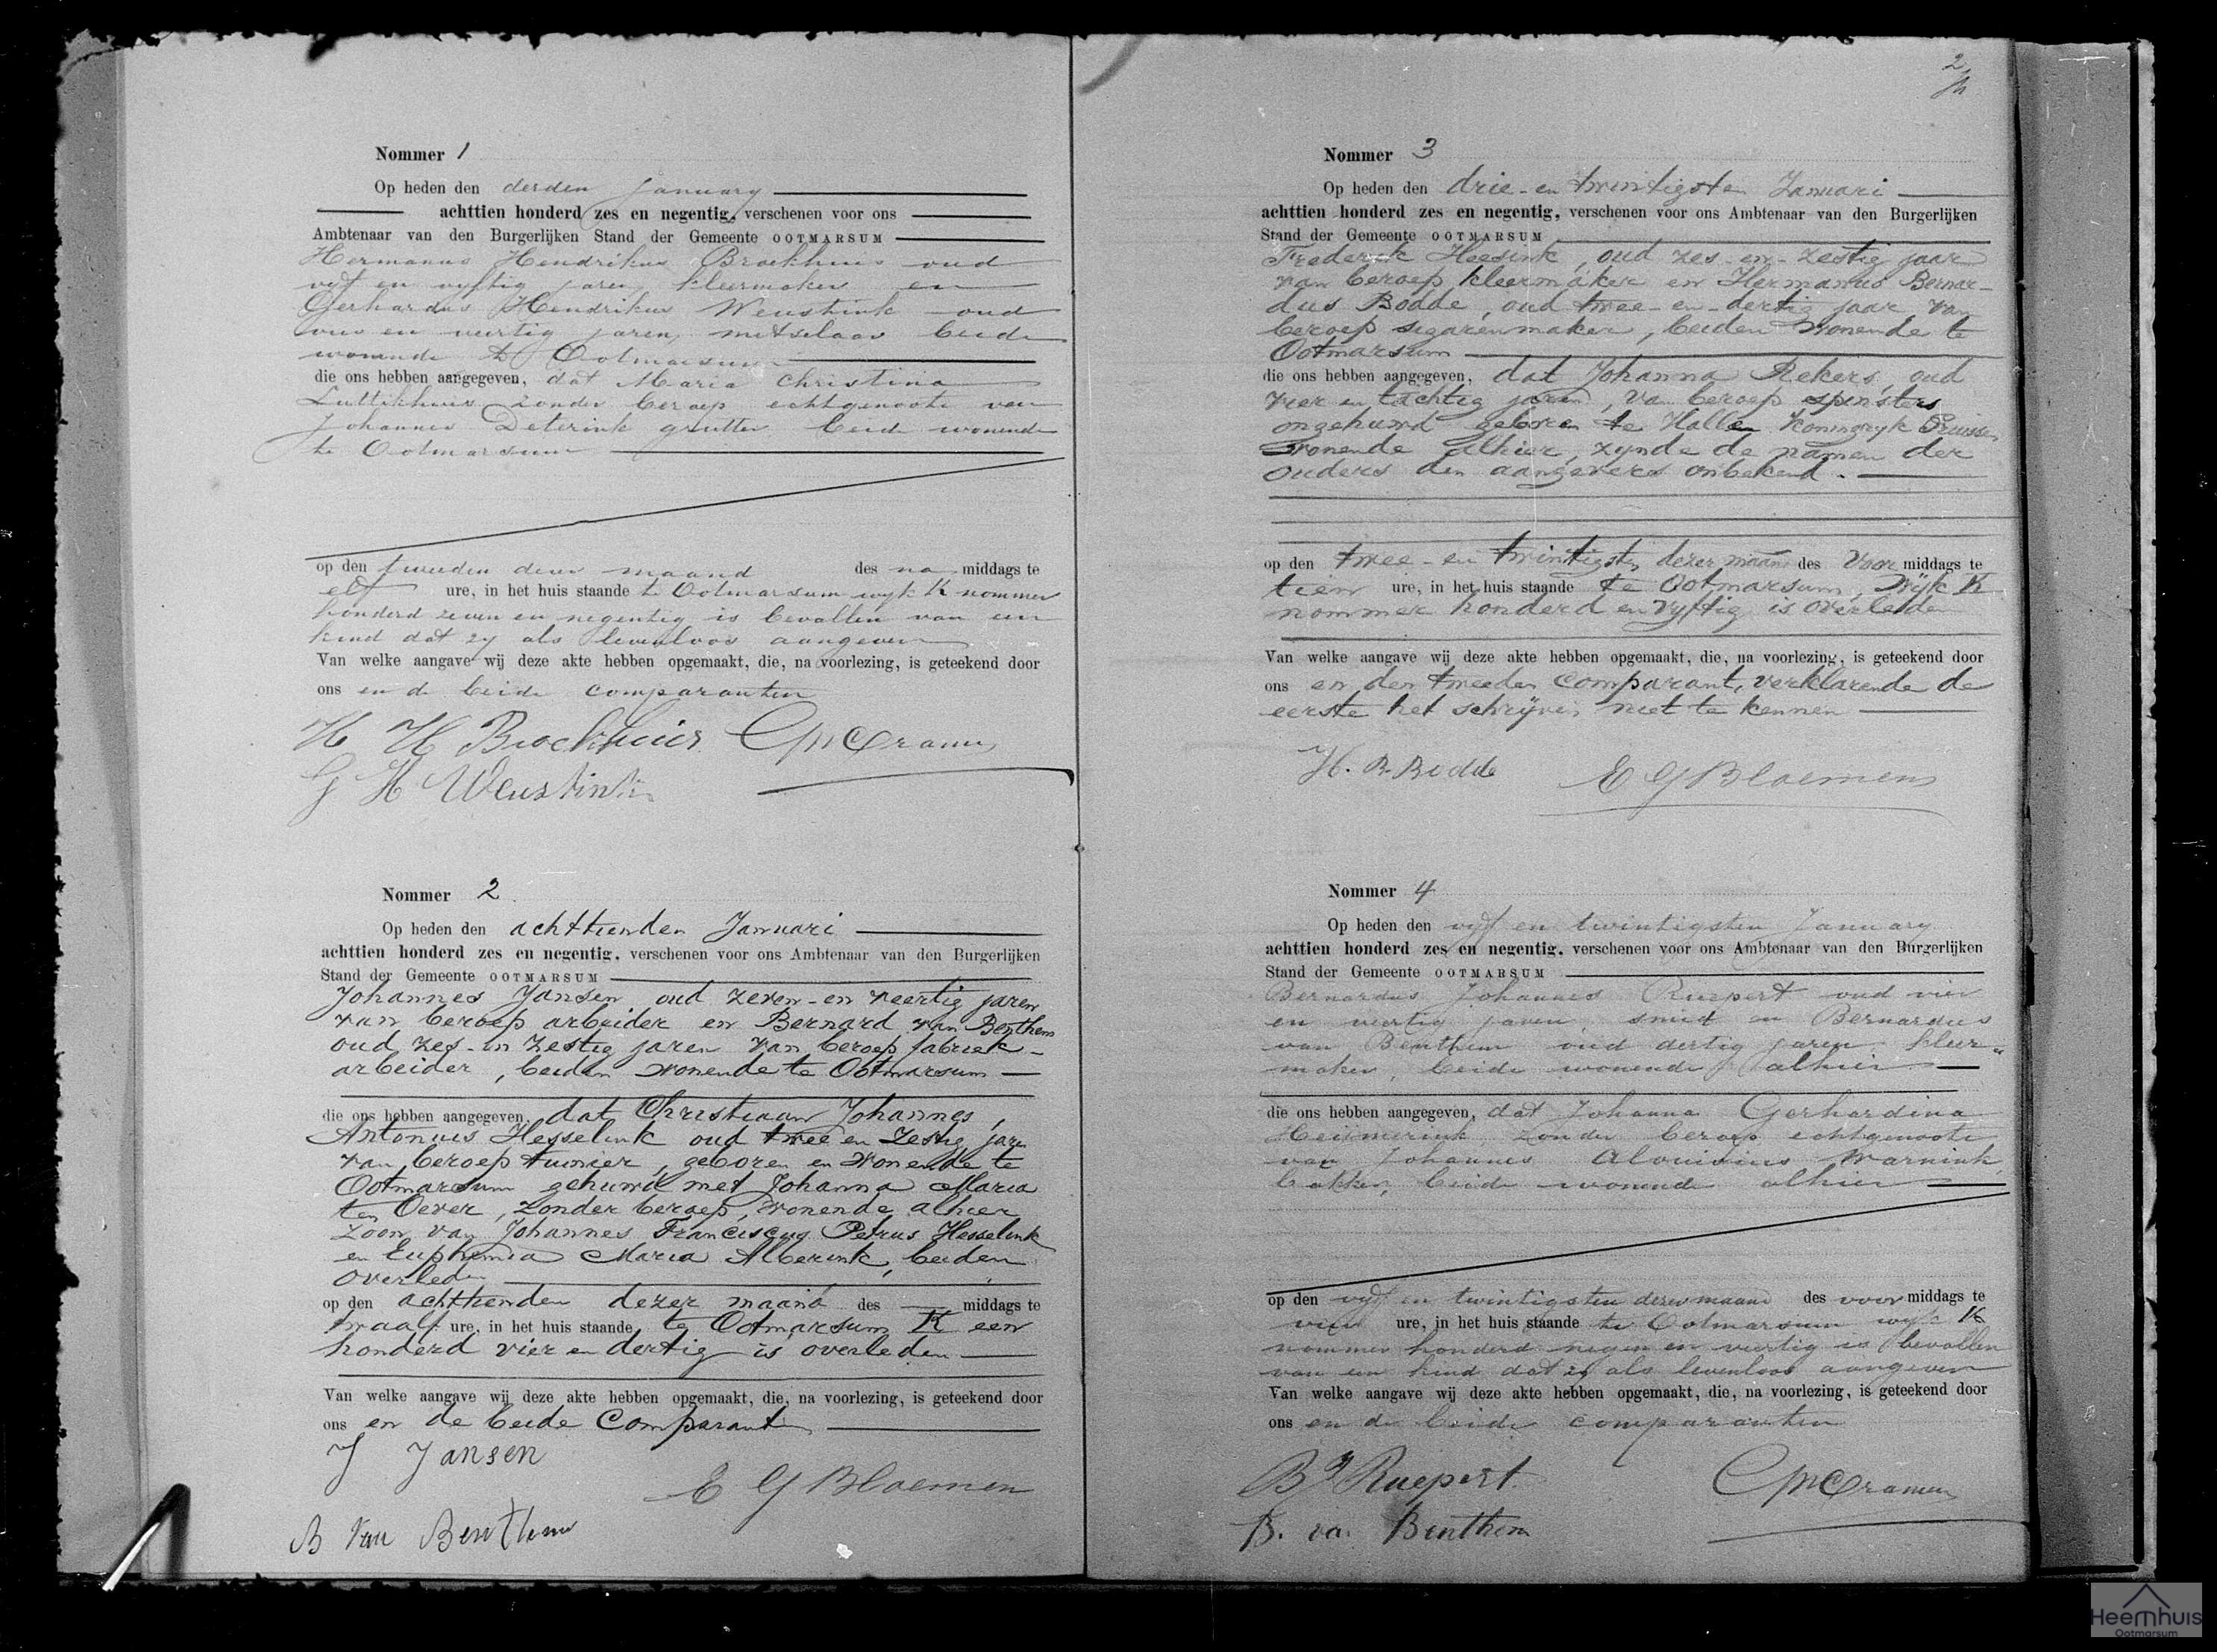 Nommer 1
Op heden den derden January
achttien honderd zes en negentig, verschenen voor ons
Ambtenaar van den Burgerlijken Stand der Gemeente OOTMARSUM
Hermanus Hendrikus Brockhuis oud
vijf en vijftig jaren kleermaker en
Gerhardus Hendrikus Weustink oud
vier en veertig jaren, metselaar beide
wonende te Ootmarsum
die ons hebben aangegeven, dat Maria Christina
Luttikhuis zonder beroep echtgenoote van
Johannes Deterink grutter beide wonende
te Ootmarsum
op den tweeden dezer maand des na middags te
elf ure, in het huis staande te Ootmarsum wyk K nommer
honderd zeven en negentig is bevallen van een
kind dat zy als levenloos aangeven
Van welke aangave wij deze akte hebben opgemaakt, die, na voorlezing, is geteekend door
ons en de beide comparanten
H H Brockhuis
G H Weustink
Nommer 2
Op heden den achttienden Januari
achttien honderd zes en negentig, verschenen voor ons Ambtenaar van den Burgerlijken
Stand der Gemeente OOTMARSUM
Johannes Jansen oud zeven-en veertig jaren
van beroep arbeider en Bernard van Benthem
oud zes-en zestig jaren van beroep fabriek-
arbeider, beiden wonende te Ootmarsum
die ons hebben aangegeven, dat Christiaan Johannes,
Antonius Hesselink oud twee en zestig jaren
van beroep tuinier, geboren en wonende te
Ootmarsum gehuwd met Johanna Maria
ten Oever, zonder beroep, wonende alhier
zoon van Johannes Franciscus Petrus Hesselink
en Euphemia Maria Alberink, beiden
overleden
op den achttienden dezer maand des middags te
twaalf ure, in het huis staande te Ootmarsum K een
honderd vier en dertig is overleden
Van welke aangave wij deze akte hebben opgemaakt, die, na voorlezing, is geteekend door
ons en de beide Comparanten
J Jansen
E G Bloemen
B van Benthem
2
Nommer 3
Op heden den drie-en twintigsten Januari
achttien honderd zes en negentig, verschenen voor ons Ambtenaar van den Burgerlijken
Stand der Gemeente OOTMARSUM
Frederik Hoesink, oud zes-en-zestig jaar
van beroep kleermaker en Hermanus Bernar-
dus Bodde, oud twee-en-dertig jaar van
beroep sigarenmaker, beiden wonende te
Ootmarsum
die ons hebben aangegeven, dat Johanna Rekers, oud
vier en tachtig jaren, van beroep spinster
ongehuwd geboren te Hallen Koningryk Pruissen
wonende alhier, zynde de namen der
ouders den aangevers onbekend.
op den twee-en twintigsten dezer maand des Voor middags te
tien ure, in het huis staande te Ootmarsum, Wijk K
nommer honderd en vyftig is overleden
Van welke aangave wij deze akte hebben opgemaakt, die, na voorlezing, is geteekend door
ons en den tweeden Comparant, verklarende de
eerste het schrijven niet te kennen
H. B. Bodde
E G Bloemen
Nommer 4
Op heden den vijf en twintigsten January
achttien honderd zes en negentig, verschenen voor ons Ambtenaar van den Burgerlijken
Stand der Gemeente OOTMARSUM
Bernardus Johannes Ruepert oud vier
en veertig jaren, smid en Bernardus
van Benthem oud dertig jaren kleer-
maker, beide wonende alhier
die ons hebben aangegeven, dat Johanna Gerhardina
zonder beroep echtgenoote
van Johannes Alouisius Warnink
bakker, beide wonende alhier
op den vijf en twintigsten dezer maand des voor middags te
vier ure, in het huis staande te Ootmarsum wyk K
nommer honderd negen en veertig is bevallen
van een kind dat zy als levenloos aangeven
Van welke aangave wij deze akte hebben opgemaakt, die, na voorlezing, is geteekend door
ons en de beide comparanten
B J Ruepert
B. van Benthem
Heemhuis
Ootmarsum